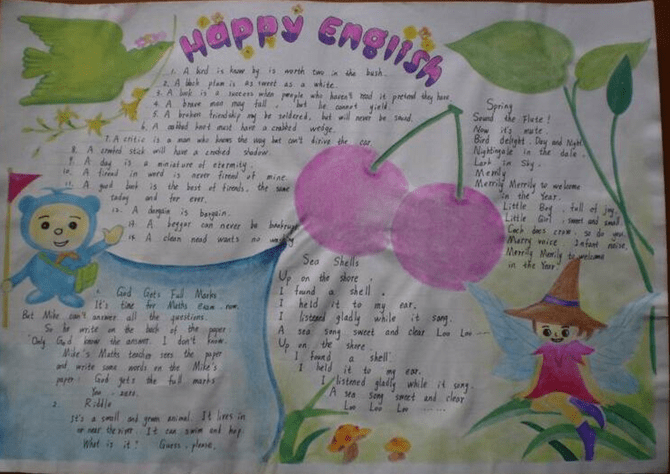 Happy English
1. A bird is know by is worth two in the bush.
2. A black plum is as sweet as a white.
3. A book is a success when people who haven't read it pretend they have.
4. A brave man may fall, but he cannot yield.
5. A broken friendship may be soldered, but will never be sound.
6. A crabbed knot must have a crabbed wedge.
7. A critic is a man who knows the way but can't drive the car.
8. A crooked stick will have a crooked shadow.
9. A day is a miniature of eternity.
10. A friend in word is never friend of mine.
11. A good book is the best of friends, the same
today and for ever.
12. A bargain is bargain.
13. A beggar can never be bankrupt
14. A clean hand wants no washing
1. God Gets Full Marks
It's time for Maths exam now.
But Mike can't answer all the questions.
So he write on the back of the paper
"Only God know the answer. I don't know.
Mike's Maths teacher sees the paper
and write some words on the Mike's
paper: God gets the full marks
You, zero.
2. Riddle
It's a small and green animal. It lives in
or near the river. It can swim and hop.
What is it? Guess, please.
Sea Shells
Up on the shore,
I found a shell,
I held it to my ear,
I listened gladly while it song,
A sea song sweet and clear Loo Loo ---
Up on the shore
I found a shell
I held it to my ear,
I listened gladly while it song,
A sea song sweet and clear
Loo Loo Loo .......
Spring
Sound the Flute!
Now it's mute.
Bird delight, Day and Night
Nightingale in the dale,
Lark in Sky,
Merrily
Merrily Merrily to welcome
in the Year.
Little Boy, full of joy,
Little Girl, sweet and small
Cock does crow, so do you,
Merry voice, Infant noise,
Merrily Merrily to welcome
in the Year.